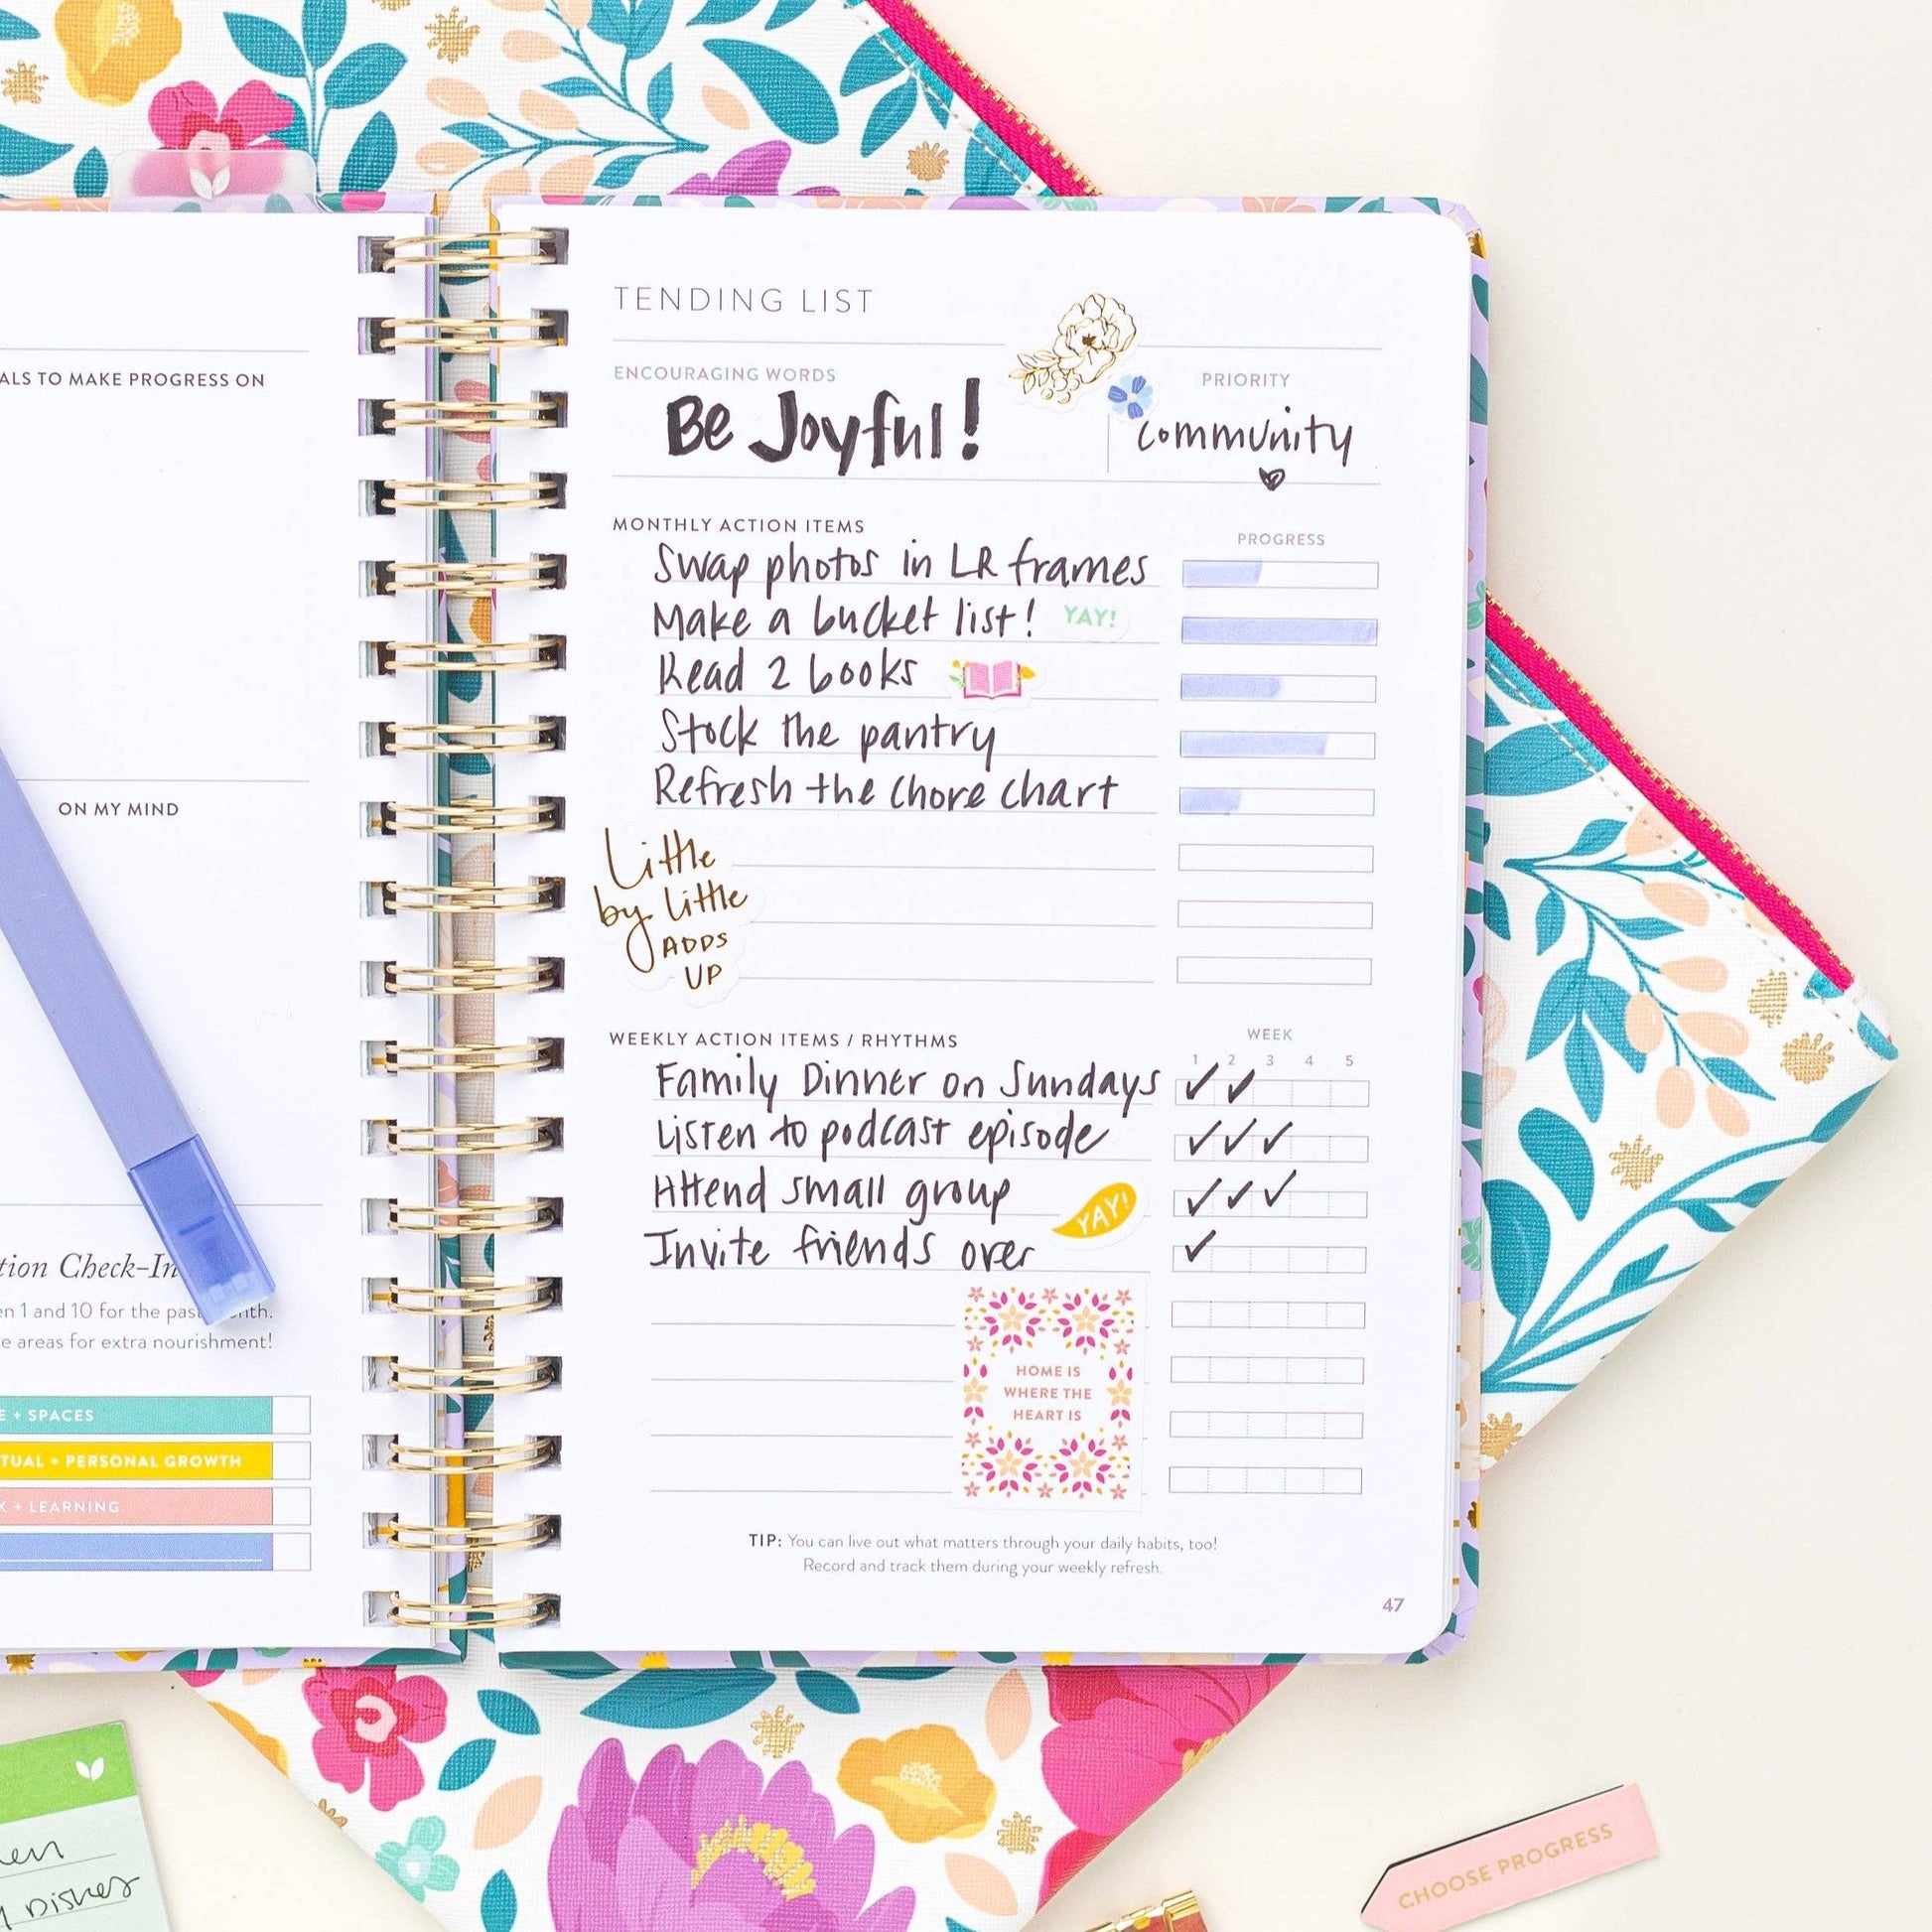 ALS TO MAKE PROGRESS ON
ON MY MIND
tion Check-In
en 1 and 10 for the past
e areas for extra nourishment!
E + SPACES
TUAL + PERSONAL GROWTH
K + LEARNING
TENDING LIST
ENCOURAGING WORDS
Be Joyful!
PRIORITY
community
MONTHLY ACTION ITEMS
PROGRESS
Swap photos in LR frames
Make a bucket list! YAY!
Read 2 books
Stock the pantry
Refresh the chore chart
Little
by little
ADDS
UP
WEEKLY ACTION ITEMS / RHYTHMS
WEEK
1 2 3 4 5
Family Dinner on Sundays
Listen to podcast episode
Attend small group
YAY!
Invite friends over
HOME IS
WHERE THE
HEART IS
TIP: You can live out what matters through your daily habits, too!
Record and track them during your weekly refresh.
47
Dishes
CHOOSE PROGRESS